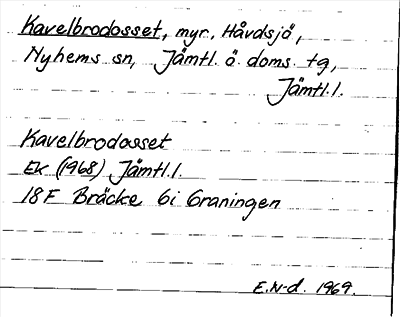 Kavelbrodosset, myr, Håvdsjö,
Nyhems sn, Jämtl. ö. doms. tg,
Jämtl.l.
Kavelbrodosset
Ek (1968) Jämtl.l.
18F Bräcke 6i Graningen
E.N-d. 1969.